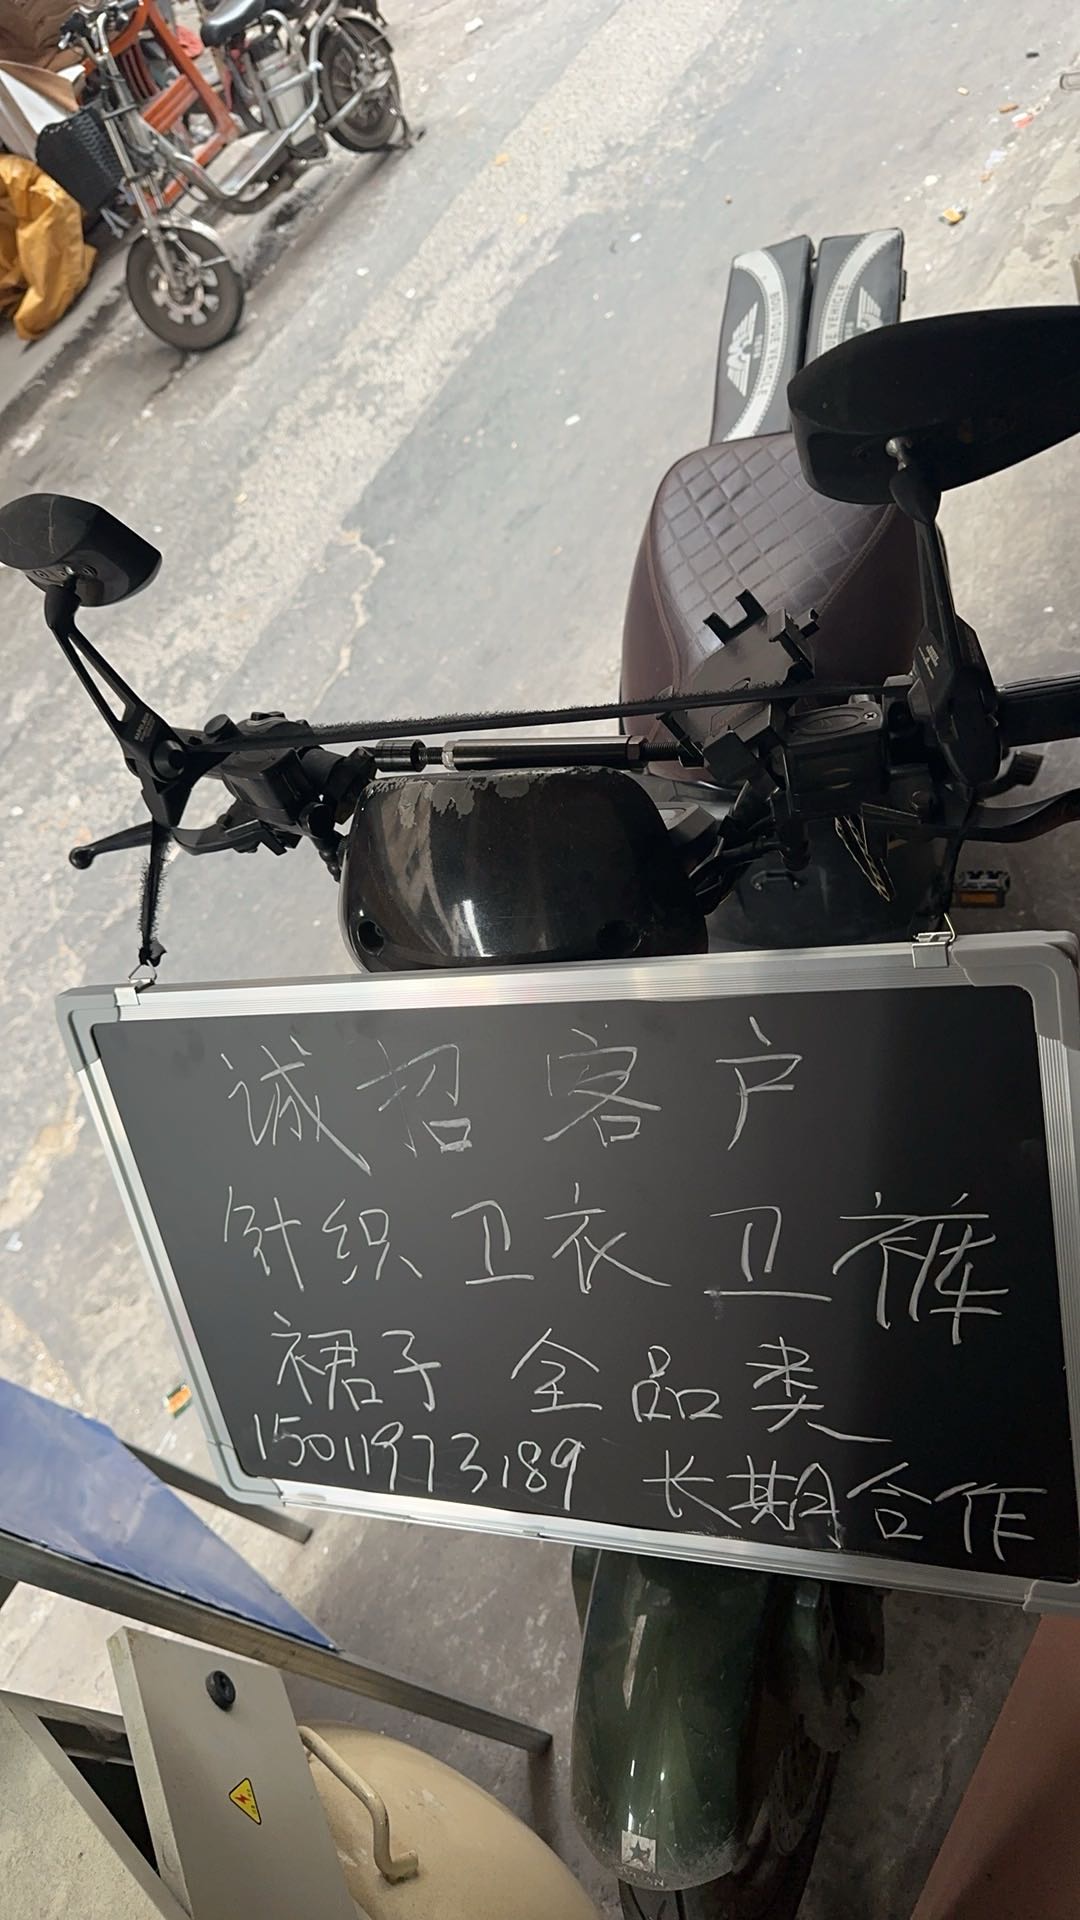 诚招客户
针织卫衣卫裤
裙子 全品类
15011973189 长期合作